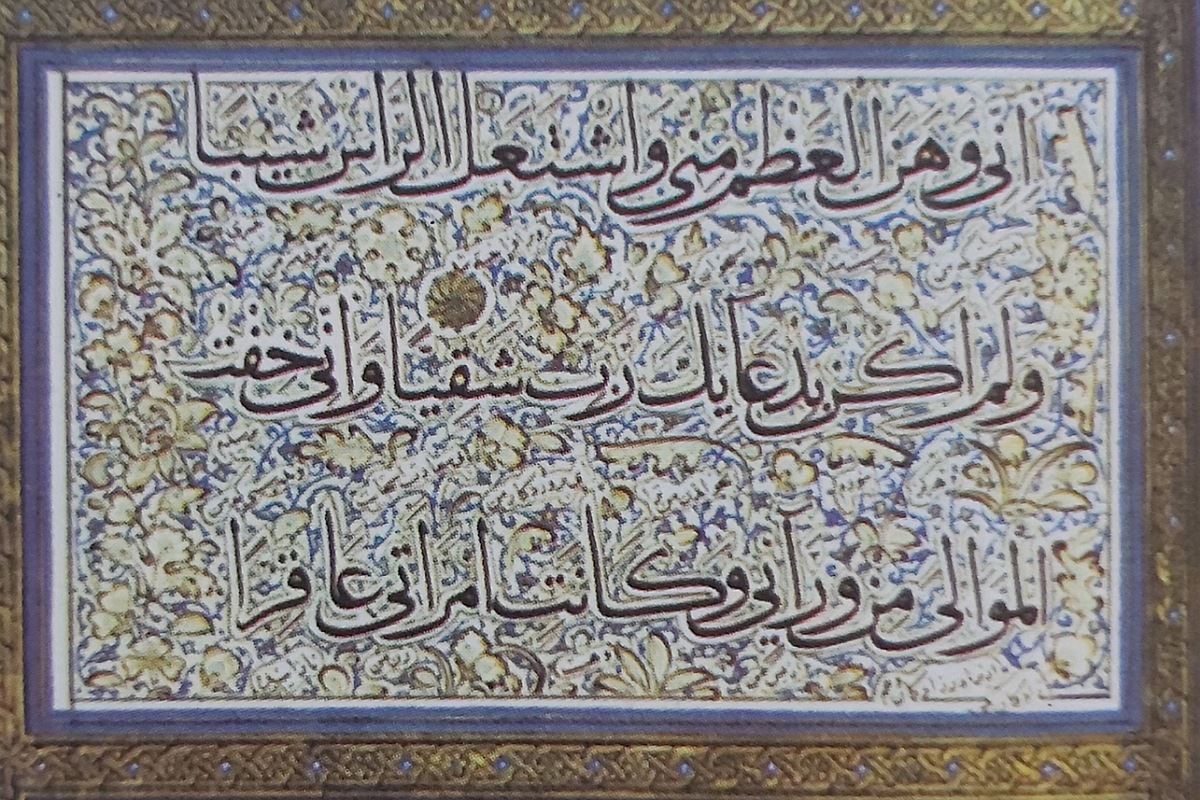 انى وهن العظم منى واشتعل الراس شيبا
ولم اكن بدعايك رب شقيا وانى خفت
الموالى من ورآنى وكانت امراتى عاقرا